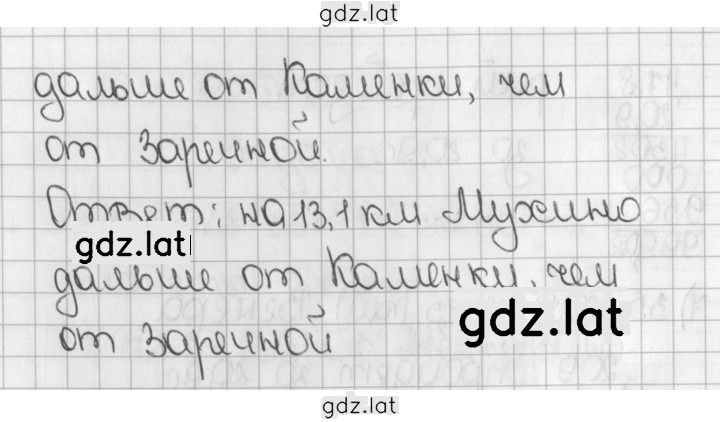 gdz.lat
дальше от Каменки, чем
от Заречной.
Ответ: на 13,1 км Мухино
gdz.lat
дальше от Каменки, чем
gdz.lat
от Заречной
gdz.lat